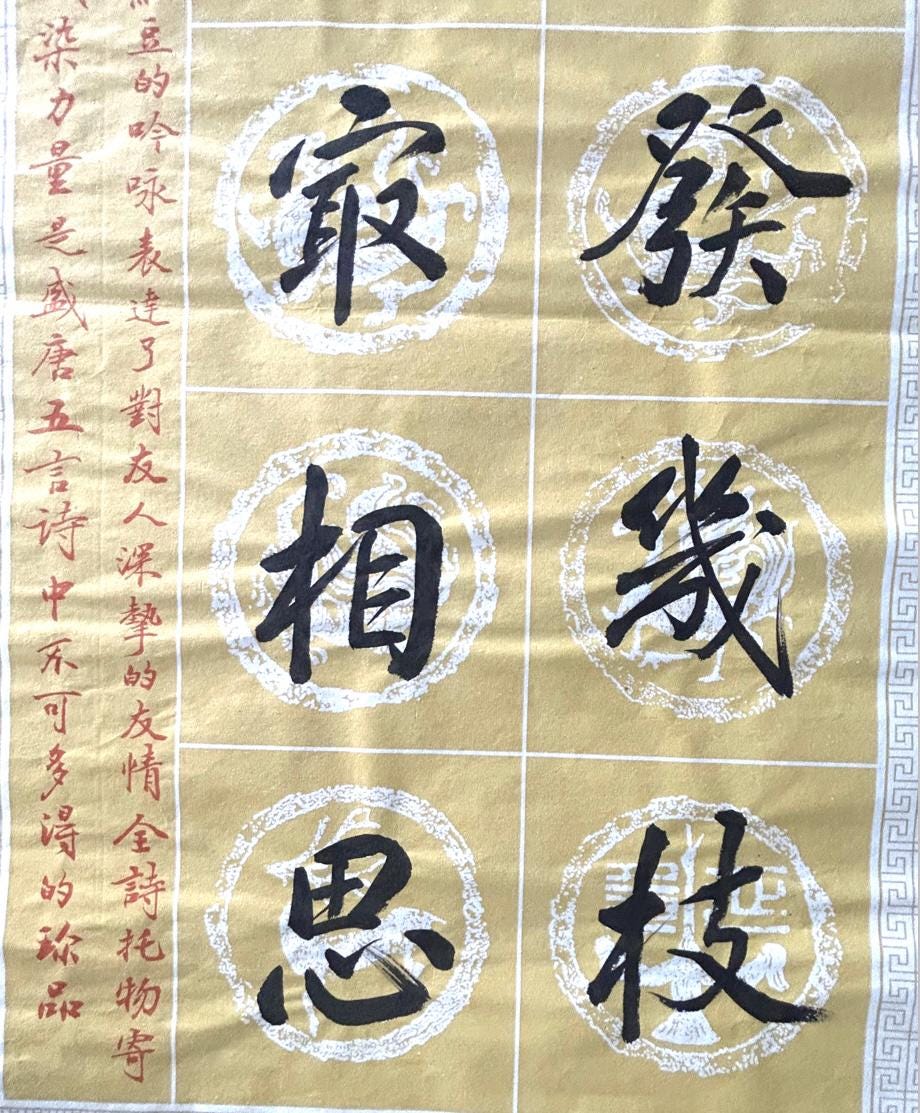 發幾枝
㝡相思
豆的吟咏表達了對友人深摯的友情全詩托物寄
染力量是盛唐五言詩中不可多得的珍品